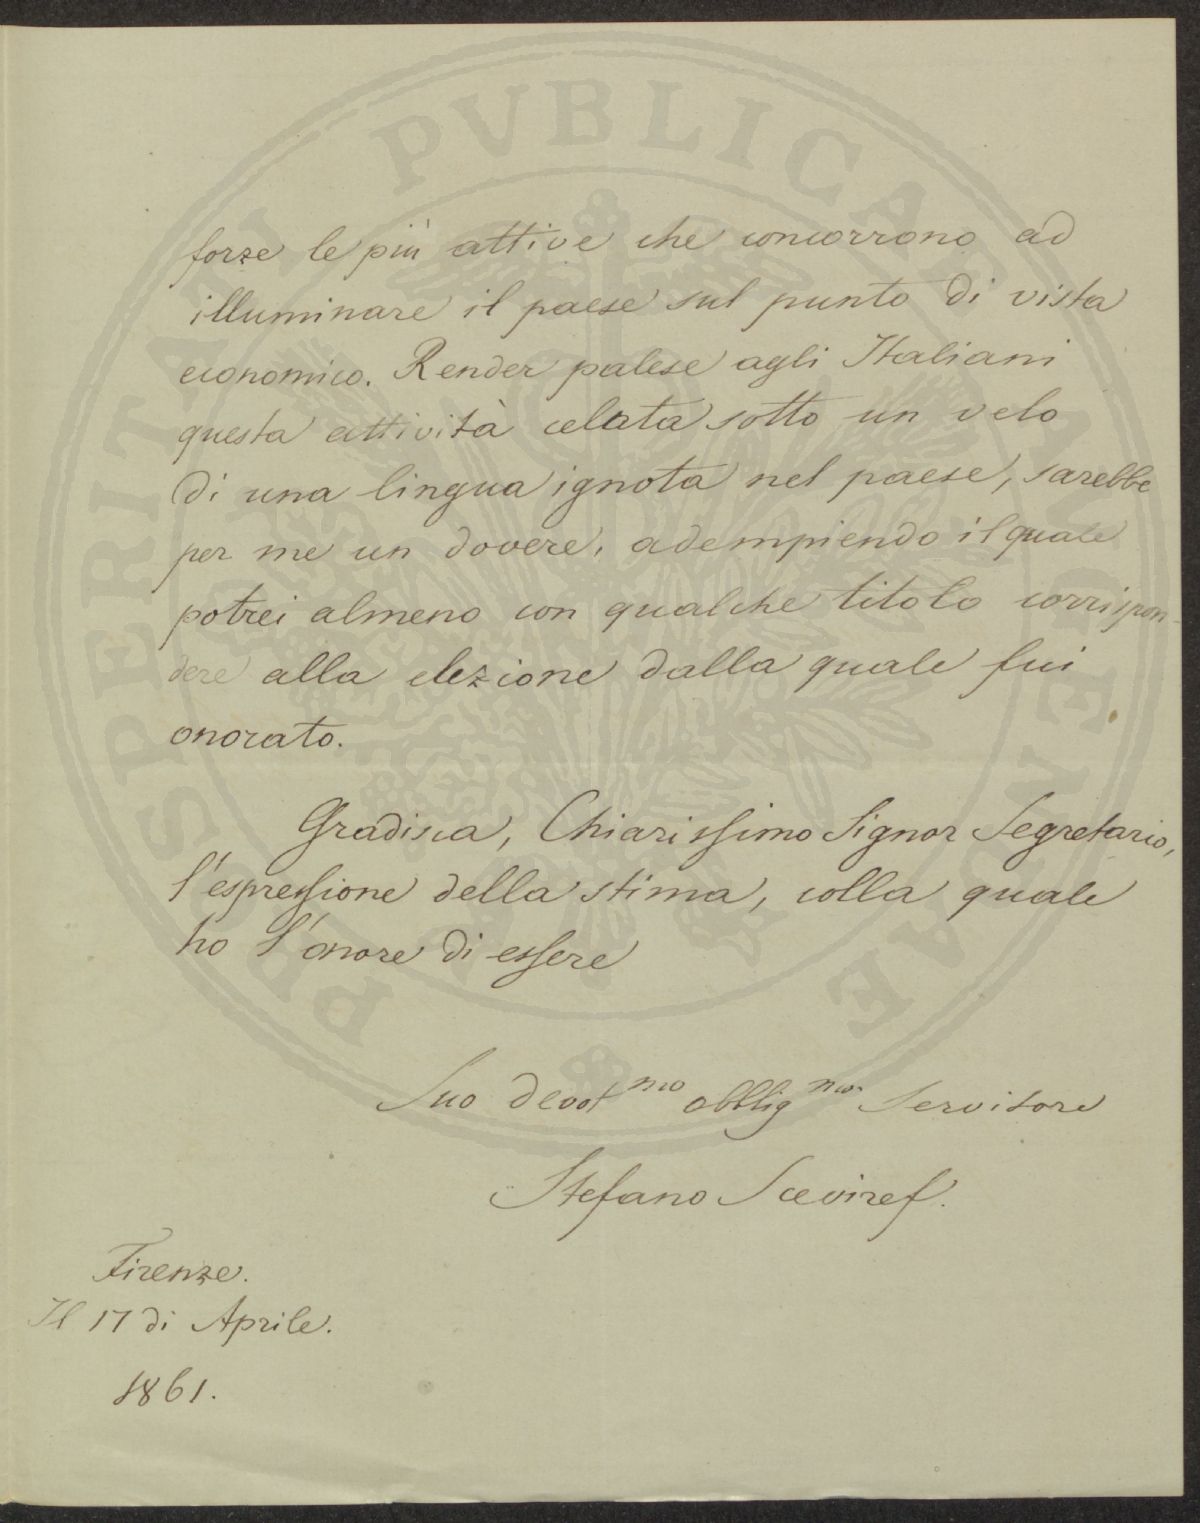 forze le più attive che concorrono ad
illuminare il paese sul punto di vista
economico. Render palese agli Italiani
questa attività celata sotto un velo
di una lingua ignota nel paese, sarebbe
per me un dovere, adempiendo il quale
potrei almeno con qualche titolo corrispon-
dere alla elezione dalla quale fui
onorato.
Gradisca, Chiarissimo Signor Segretario,
l'espressione della stima, colla quale
ho l'onore di essere
Suo devot mo obblig mo Servitore
Stefano Sceviref.
Firenze.
Il 17 di Aprile.
1861.
PROSPERITATI PVBLICAE AVGENDAE